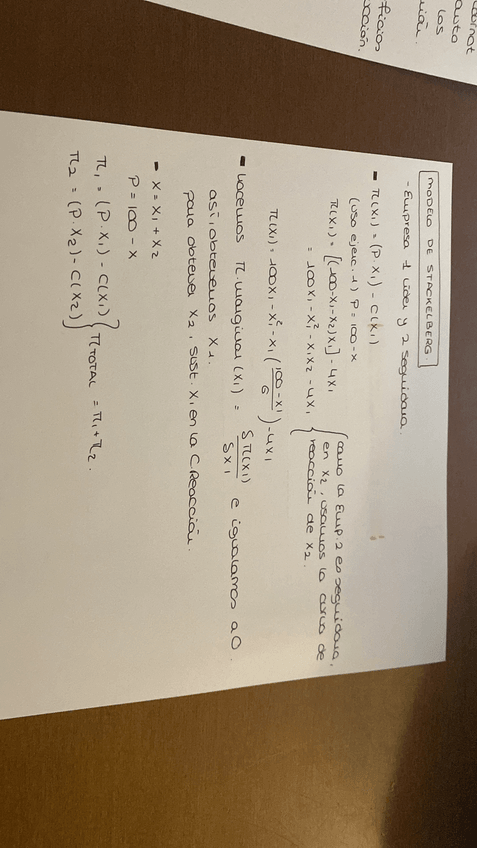 MODELO DE STACKELBERG.
- Empresa 1 líder y 2 seguidora.
- π(x₁) = (P·x₁) - C(x₁)
(uso ejerc. 1) P = 100 - x
π(x₁) = [(100-x₁-x₂)x₁] - 4x₁
= 100x₁ - x₁² - x₁x₂ - 4x₁
como la Emp. 2 es seguidora,
en x₂, usamos la curva de
reacción de x₂.
π(x₁) = 100x₁ - x₁² - x₁ (100-x₁/6) - 4x₁
- Hacemos π marginal (x₁) = δπ(x₁)/δx₁ e igualamos a 0.
así, obtenemos x₁.
para obtener x₂, sust. x₁ en la C.Reacción.
- x = x₁ + x₂
P = 100 - x
π₁ = (P·x₁) - C(x₁)
π₂ = (P·x₂) - C(x₂)
π TOTAL = π₁ + π₂.
auto
los
ficios